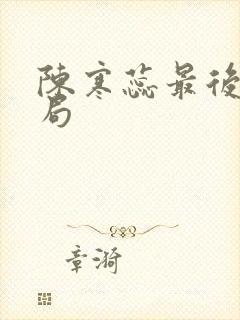 陳寒蕊最後
局
章漪